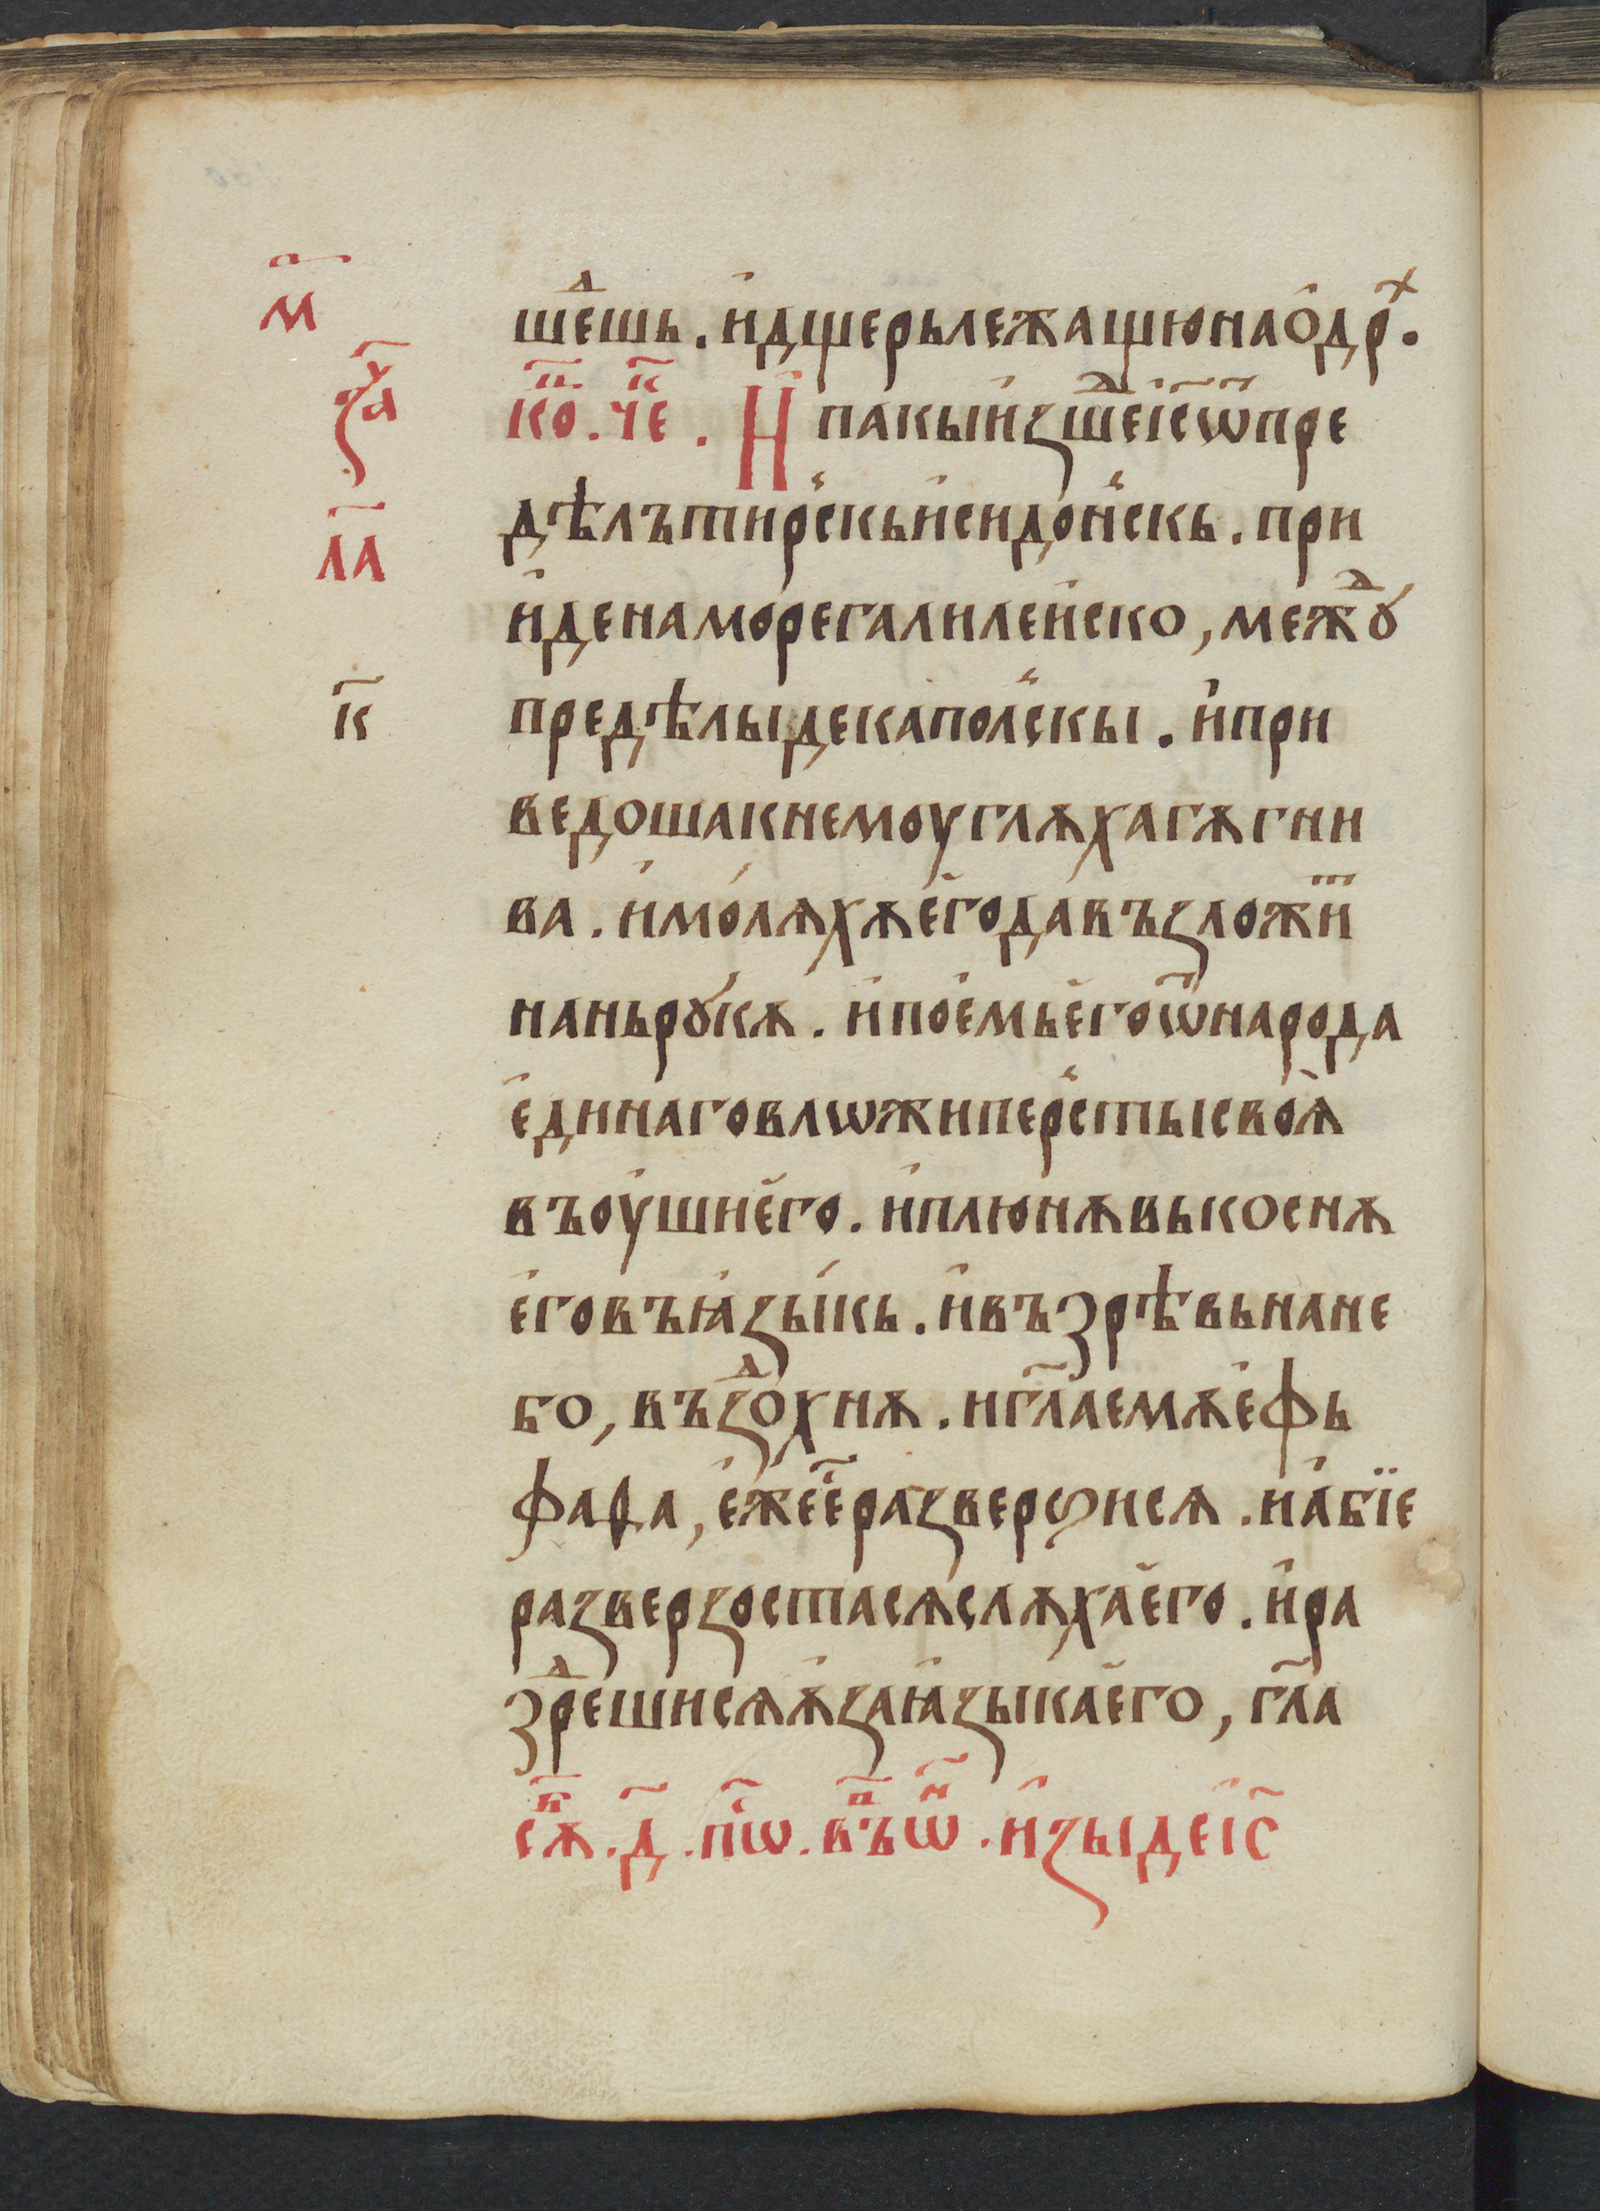 м҃п
за҃ч
ла҃
к҃
шеⷣшь . и҆ дщерь лежащю на о҆дрⷯ .
коⷩ҇ . чеⷦ҇ . И҆ пакы и҆зшеⷣ і҆с ѿ пре
дѣлъ тирⸯскь и҆ сидонⸯскь . при
и҆де на море галилеи҆ско , межⷣꙋ
предѣлы декаполⸯскы . и҆ при
ведоша к немоу глѫха гѫгни
ва . и҆ молѧхѫ е҆го да възложи҆
нань рꙋкѫ . и҆ пое҆мь е҆го ѿ народа
е҆динаго влѡжи перⸯсты своѧ҆
въ оу҆ши е҆го . и҆ плюнѫвь коснѫ
е҆го въ ꙗ҆зыкь . и҆ възрѣвь на не
бо , въздⷣохнѫ . и гл҃а емѫ е҆фь
фаѳа , е҆же е҆сⷭ҇ разверѕисѧ . и҆ абїе
разверзостасѧ слѫха е҆го . и҆ ра
зрⷣешисѧ ѫ҆за ꙗ҆зыка е҆го , гл҃а
сѫⷠ҇ . д҃ . пѡⷭ҇ . въⷫ҇ ѡⷩ҇ . и҆зыде і҆с҃